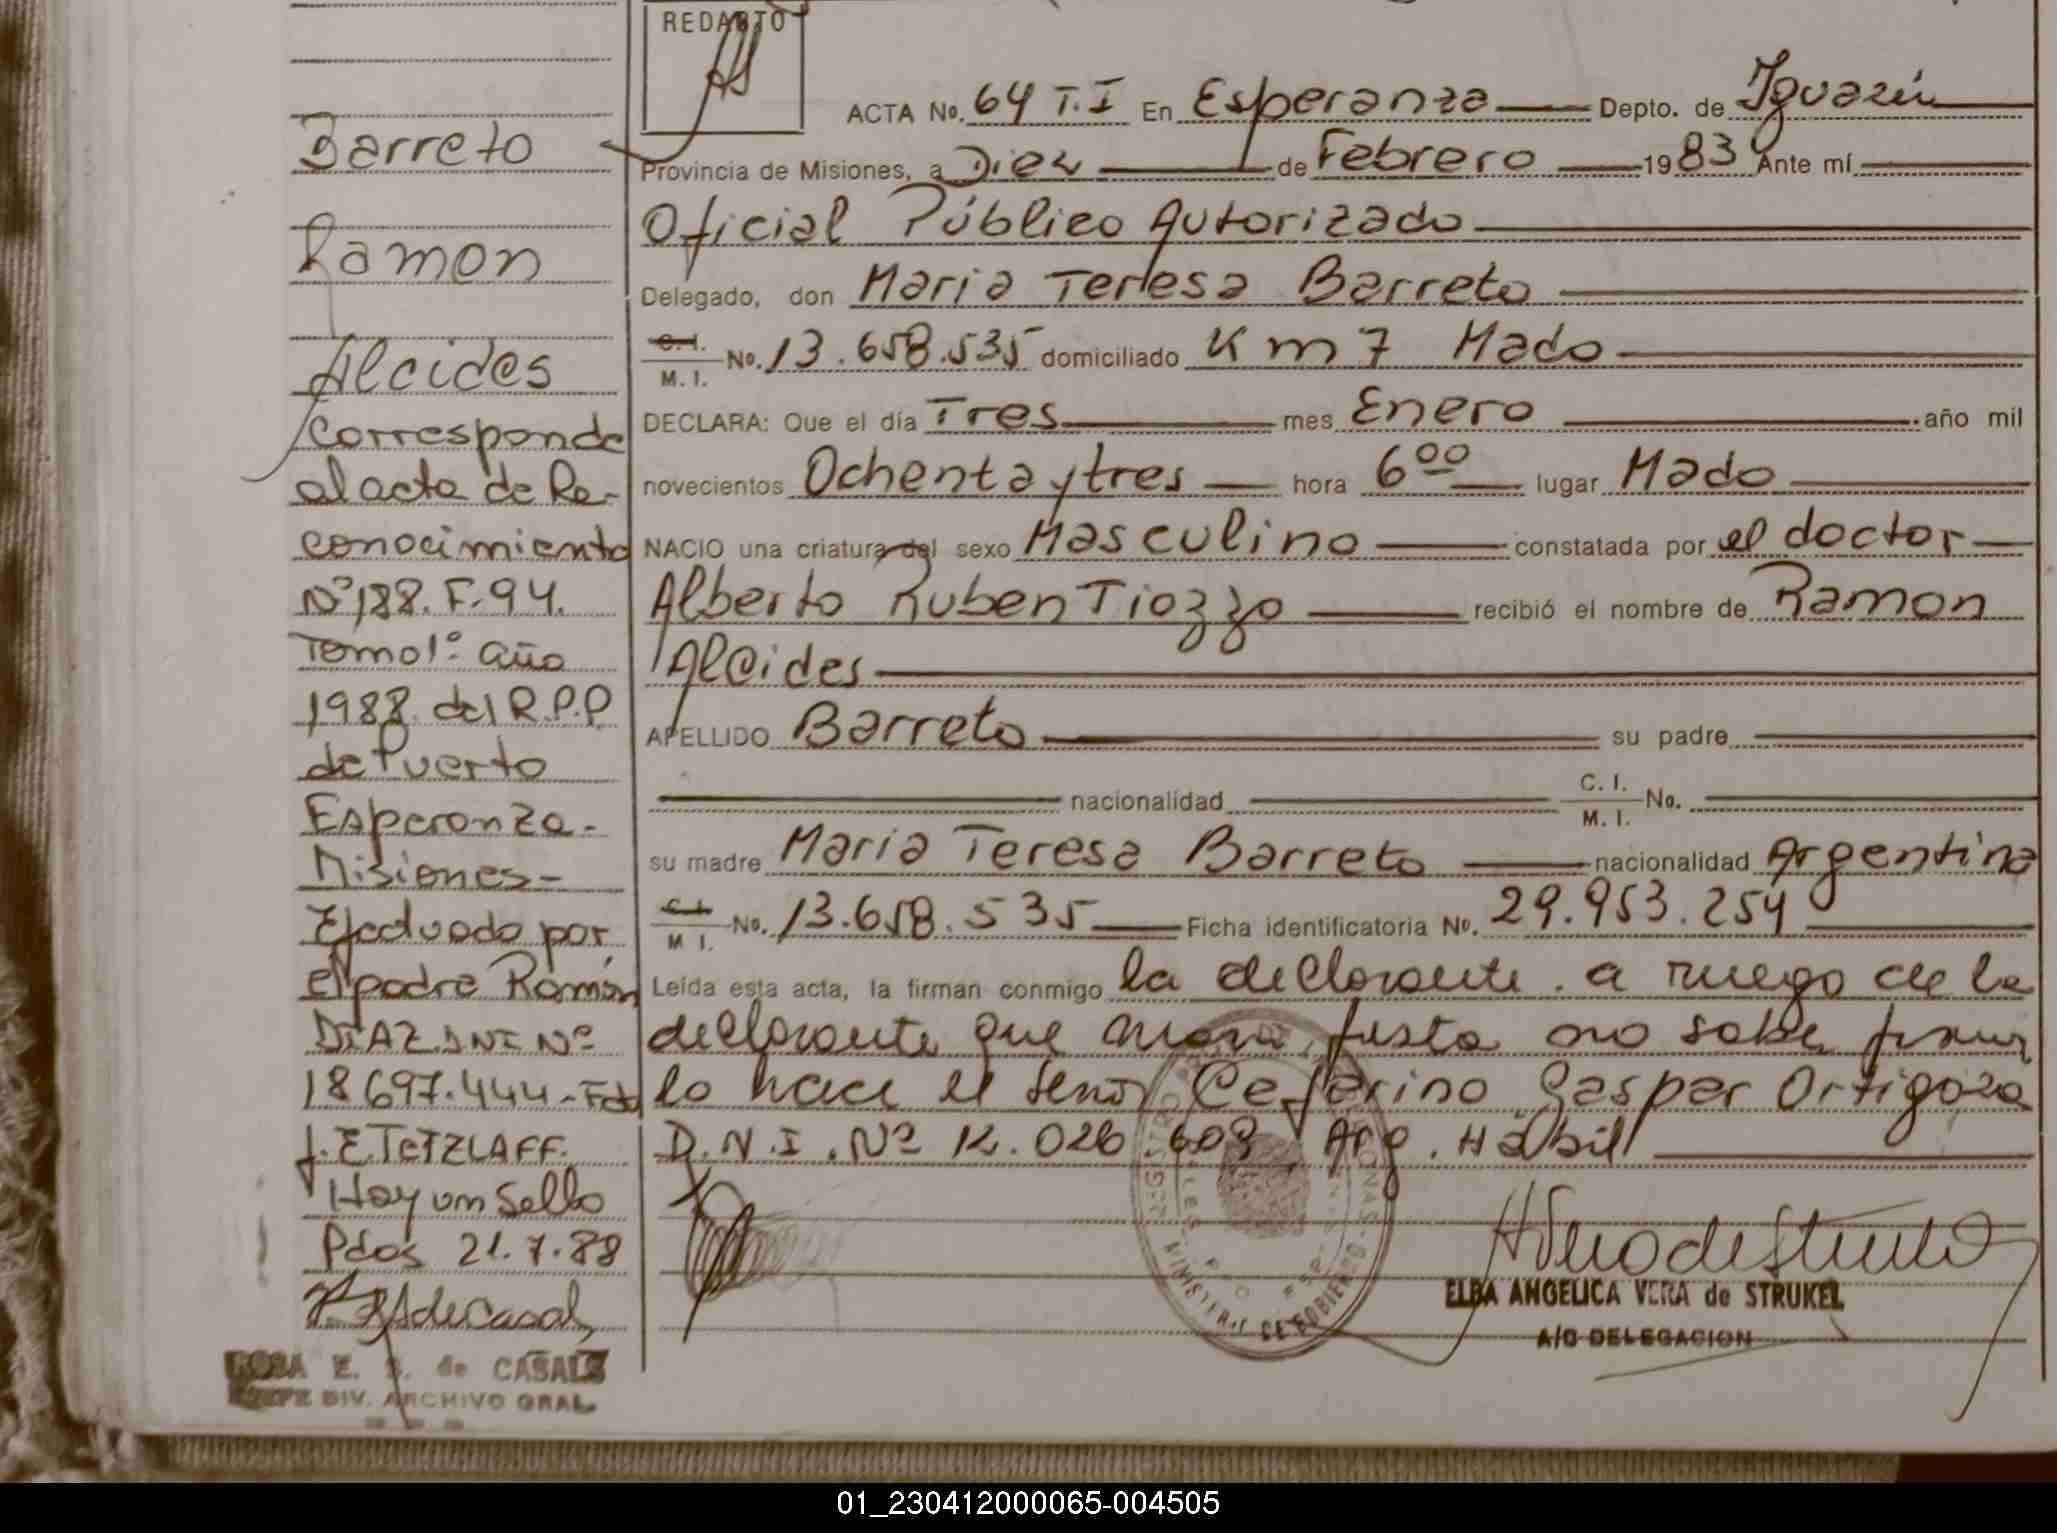 REDACTO
Barreto
Ramon
Alcides
Corresponde
al acta de Re-
conocimiento
Nº 188. F. 94.
Tomo 1º año
1988. del R.P.P
de Puerto
Esperanza.
Misiones-
Efectuado por
el padre Ramón
DIAZ DNI Nº
18697.444-Fdo
J.E.TETZLAFF.
Hay un Sello
Pdas 21.7.88
ROSA E. S. de CASALS
JEFE DIV. ARCHIVO GRAL
ACTA No. 64 T.I En Esperanza Depto. de Iguazú
Provincia de Misiones, a Diez de Febrero 1983 Ante mí
Oficial Público Autorizado
Delegado, don Maria Teresa Barreto
C.I. M. I. No. 13.658.535 domiciliado Km 7 Mado
DECLARA: Que el día Tres mes Enero año mil
novecientos Ochenta y tres hora 6 00 lugar Mado
NACIO una criatura del sexo Masculino constatada por el doctor
Alberto Ruben Tiozzo recibió el nombre de Ramon
Alcides
APELLIDO Barreto su padre
nacionalidad C. I. M. I. No.
su madre Maria Teresa Barreto nacionalidad Argentina
C.I. M I. No. 13.658.535 Ficha identificatoria No. 29.953.254
Leída esta acta, la firman conmigo la declarante. a ruego de la
declarante que manifiesta no sabe firmar
lo hace el señor Ceferino Gaspar Ortigoza
D.N.I. Nº 12.026.608 Arg. Habil
MINISTERIO DE GOBIERNO
ELBA ANGELICA VERA de STRUKEL
A/C DELEGACION
01_230412000065-004505